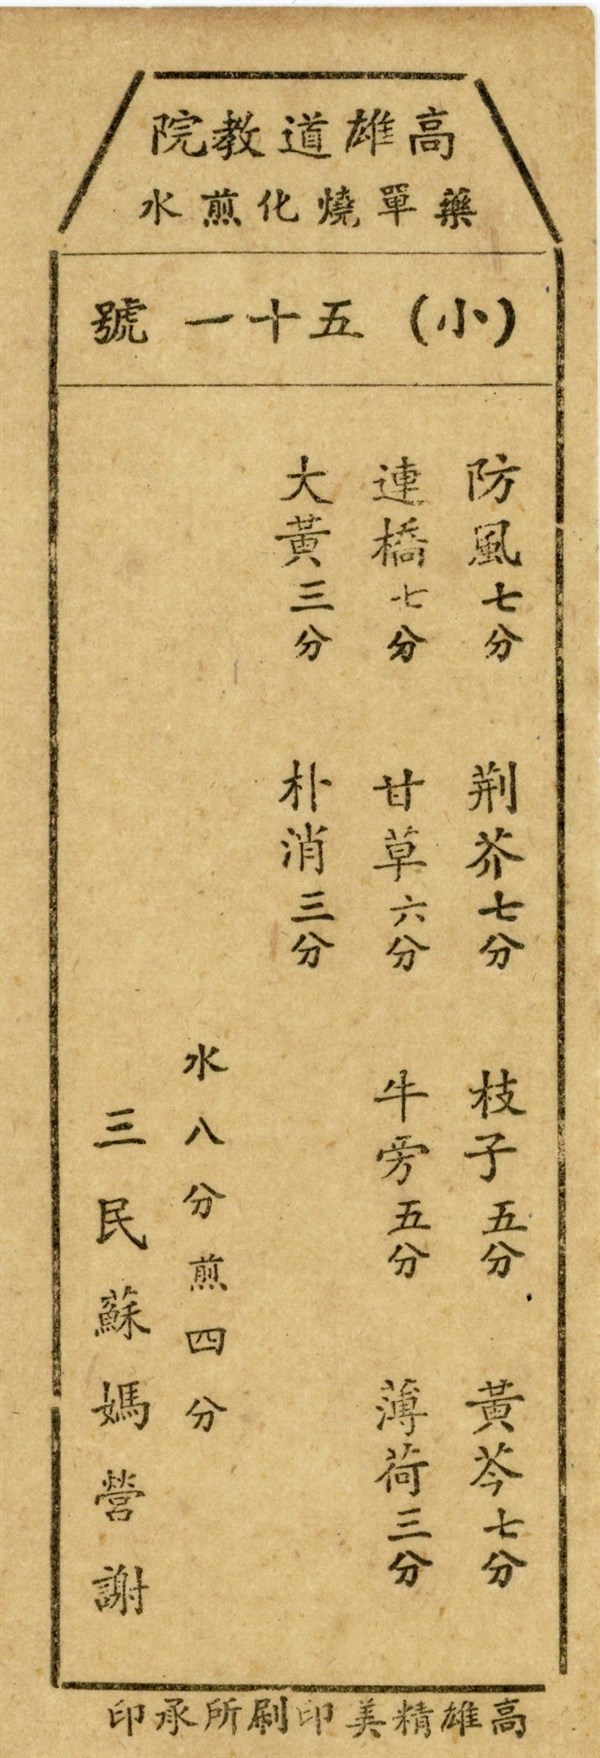 高雄道教院
藥單燒化煎水
(小) 五十一號
防風七分 荆芥七分 枝子五分 黃芩七分
連橋七分 甘草六分 牛旁五分 薄荷三分
大黃三分 朴消三分
水八分煎四分
三民蘇媽營謝
高雄精美印刷所承印